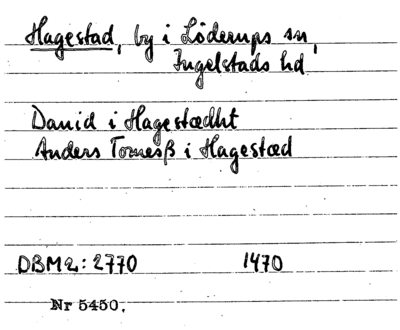 Hagestad, by i Löderups sn,
Ingelstads hd
David i Hagestædht
Anders Tornesß i Hagestæd
DBM 2: 2770 1470
Nr 5450.